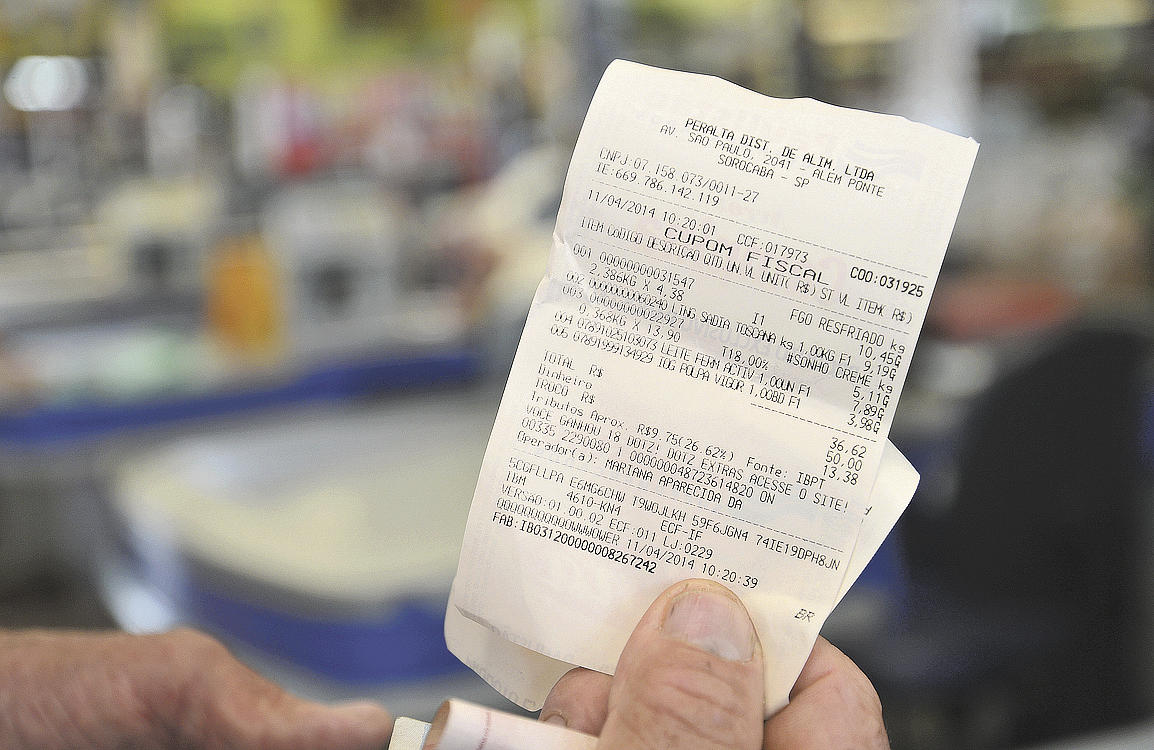 PERALTA DIST. DE ALIM. LTDA
AV. SAO PAULO, 2041 - ALEM PONTE
SOROCABA - SP
CNPJ:07.158.073/0011-27
IE:669.786.142.119
11/04/2014 10:20:01 CCF:017973 COO:031925
CUPOM FISCAL
ITEM CÓDIGO DESCRIÇÃO QTD.UN.VL UNIT( R$) ST VL ITEM( R$)
001 0000000031547 FGO RESFRIADO kg
2,386KG X 4,38 I1 10,45G
002 0000000060240 LING SADIA TOSCANA kg 1,00KG F1 9,19G
003 0000000022927 #SONHO CREME kg
0,368KG X 13,90 T18,00% 5,11G
004 07891025103073 LEITE FERM ACTIV 1,00UN F1 7,89G
005 07891999134929 IOG POLPA VIGOR 1,00BD F1 3,98G
TOTAL R$ 36,62
Dinheiro 50,00
TROCO R$ 13,38
Tributos Aprox. R$9,75(26.62%) Fonte: IBPT
VOCE GANHOU 18 DOTZ! DOTZ EXTRAS ACESSE O SITE!
00335 2290080 1 000000048723614820 ON
Operador(a): MARIANA APARECIDA DA
5CGFLLPA E6MG6CHW T9WOJLKH 59F6JGN4 74IE19DPH8JN
IBM 4610-KN4 ECF-IF
VERSAO:01.00.02 ECF:011 LJ:0229
OOOOOOOOOOWWWOWER 11/04/2014 10:20:39
FAB:IB031200000008267242
BR